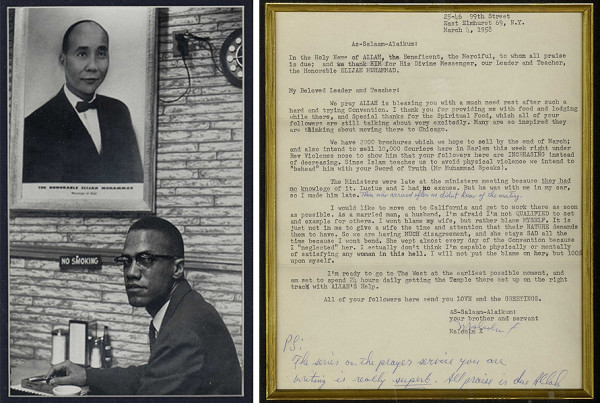 THE HONORABLE ELIJAH MUHAMMAD
Messenger of Allah
NO SMOKING
25-46 99th Street
East Elmhurst 69, N.Y.
March 4, 1958
As-Salaam-Alaikum:
In the Holy Name of ALLAH, the Beneficent, the Merciful, to whom all praise
is due; and we thank HIM for His Divine Messenger, our Leader and Teacher,
the Honorable ELIJAH MUHAMMAD.
My Beloved Leader and Teacher:
We pray ALLAH is blessing you with a much need rest after such a
hard and trying Convention. I thank you for providing me with food and lodging
while there, and Special thanks for the Spiritual Food, which all of your
followers are still talking about very excitedly. Many are so inspired they
are thinking about moving there to Chicago.
We have 2000 brochures which we hope to sell by the end of March;
and also intend to sell 10,000 Couriers here in Harlem this week right under
Rev Violence nose to show him that your followers here are INCREASING instead
of decreasing. Since Islam teaches us to avoid physical violence we intend to
"behead" him with your Sword of Truth (Mr Muhammad Speaks).
The Ministers were late at the ministers meeting because they had
no knowledge of it. Lucius and I had no excuse. But he was with me in my car,
so I made him late.
I would like to move on to California and get to work there as soon
as possible. As a married man, a husband, I'm afraid I'm not QUALIFIED to set
and example for others. I wont blame my wife, but rather blame MYSELF. It is
just not in me to give a wife the time and attention that their NATURE demands
them to have. So we are having MUCH disagreement, and she stays SAD all the
time because I wont bend. She wept almost every day of the Convention because
I "neglected" her. I actually don't think I'm capable physically or mentally
of satisfying any woman in this hell. I will not put the blame on her, but 100%
upon myself.
I'm ready to go to The West at the earliest possible moment, and
am set to spend 24 hours daily getting the Temple there set up on the right
track with ALLAH'S Help.
All of your followers here send you LOVE and the GREETINGS.
AS-Salaam-Alaikum:
your brother and servant
Malcolm X
Malcolm X
PS:
The series on the prayer service you are
writing is really superb. All praise is due Allah